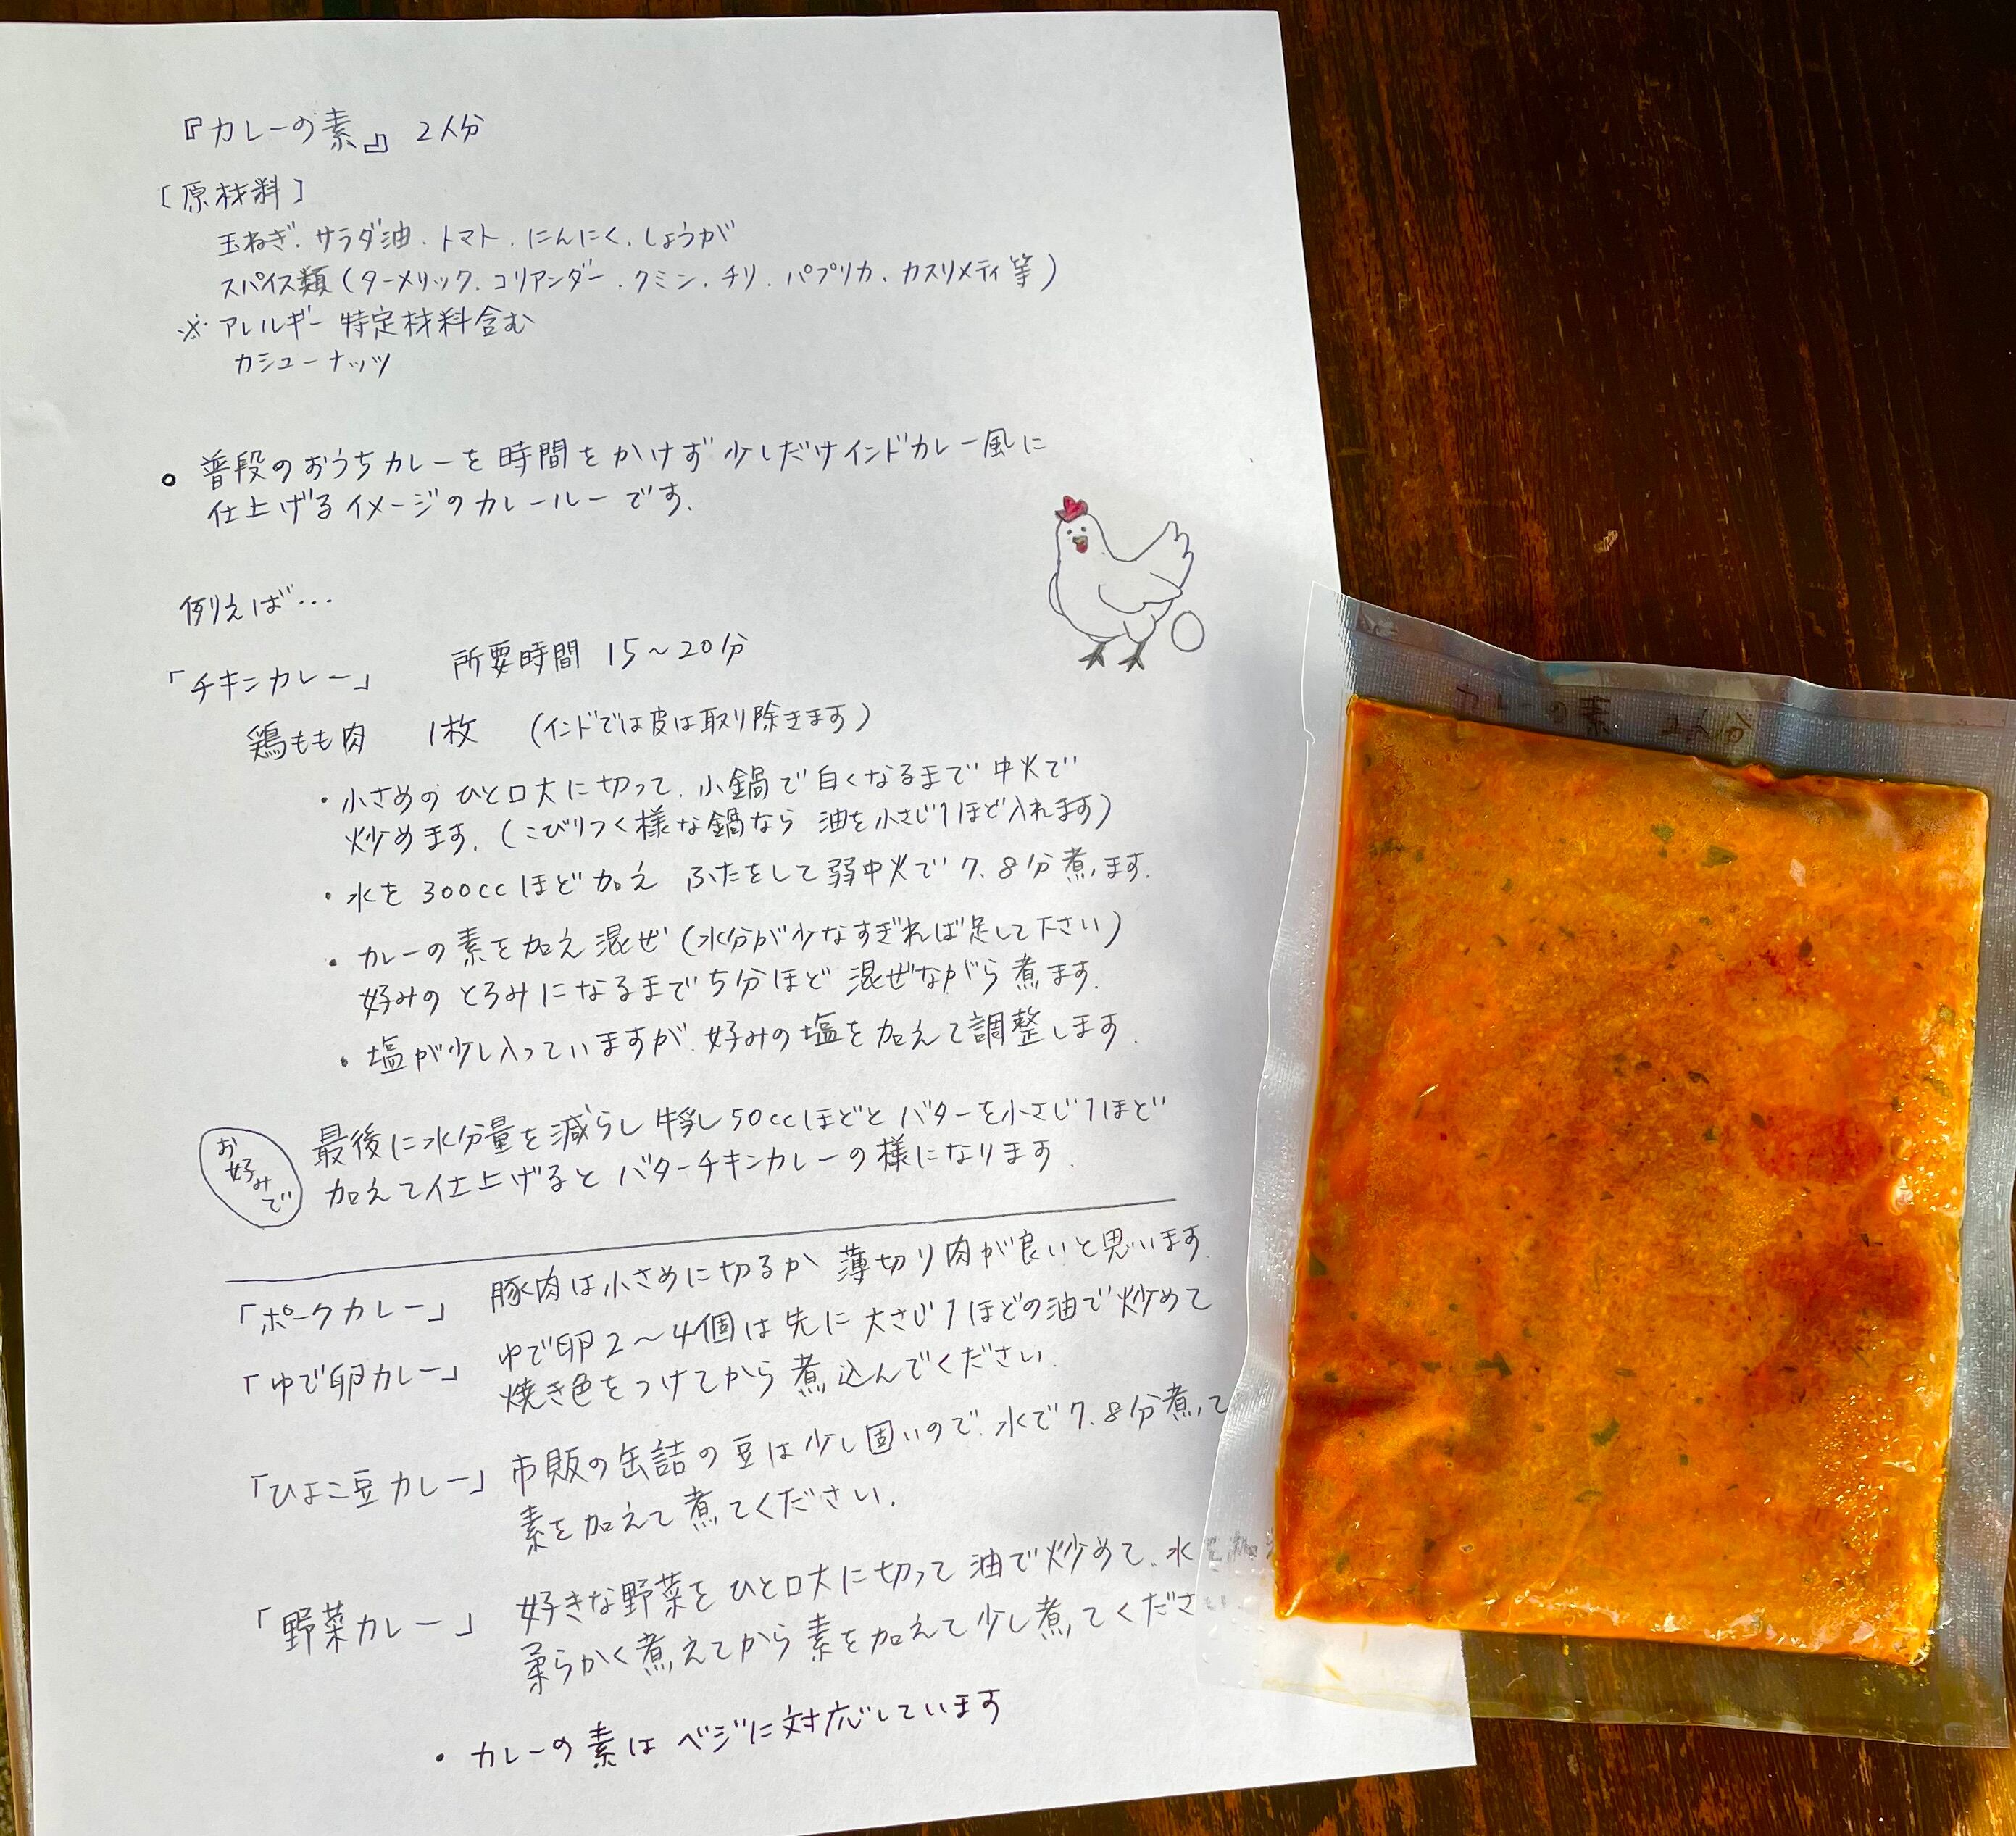 『カレーの素』 2人分
[原材料]
玉ねぎ.サラダ油.トマト.にんにく.しょうが
スパイス類(ターメリック.コリアンダー.クミン.チリ.パプリカ.カスリメティ等)
※アレルギー特定材料含む
カシューナッツ
○ 普段のおうちカレーを時間をかけず少しだけインドカレー風に
仕上げるイメージのカレールーです.
例えば…
「チキンカレー」 所要時間 15〜20分
鶏もも肉 1枚 (インドでは皮は取り除きます)
・小さめのひと口大に切って.小鍋で白くなるまで中火で
炒めます.(こびりつく様な鍋なら 油を小さじ1ほど入れます)
・水を300ccほど加え ふたをして弱中火で7.8分煮ます.
・カレーの素を加え混ぜ(水分が少なすぎれば足して下さい)
好みのとろみになるまで5分ほど混ぜながら煮ます.
・塩が少し入っていますが.好みの塩を加えて調整します.
お好みで
最後に水分量を減らし牛乳50ccほどとバターを小さじ1ほど
加えて仕上げるとバターチキンカレーの様になります.
「ポークカレー」 豚肉は小さめに切るか 薄切り肉が良いと思います.
「ゆで卵カレー」 ゆで卵2〜4個は先に大さじ1ほどの油で炒めて
焼き色をつけてから煮込んでください.
「ひよこ豆カレー」 市販の缶詰の豆は少し固いので.水で7.8分煮て
素を加えて煮てください.
「野菜カレー」 好きな野菜をひと口大に切って油で炒めて.水
柔らかく煮えてから素を加えて少し煮てくださ
・カレーの素はベジに対応しています
カレーの素 2人分